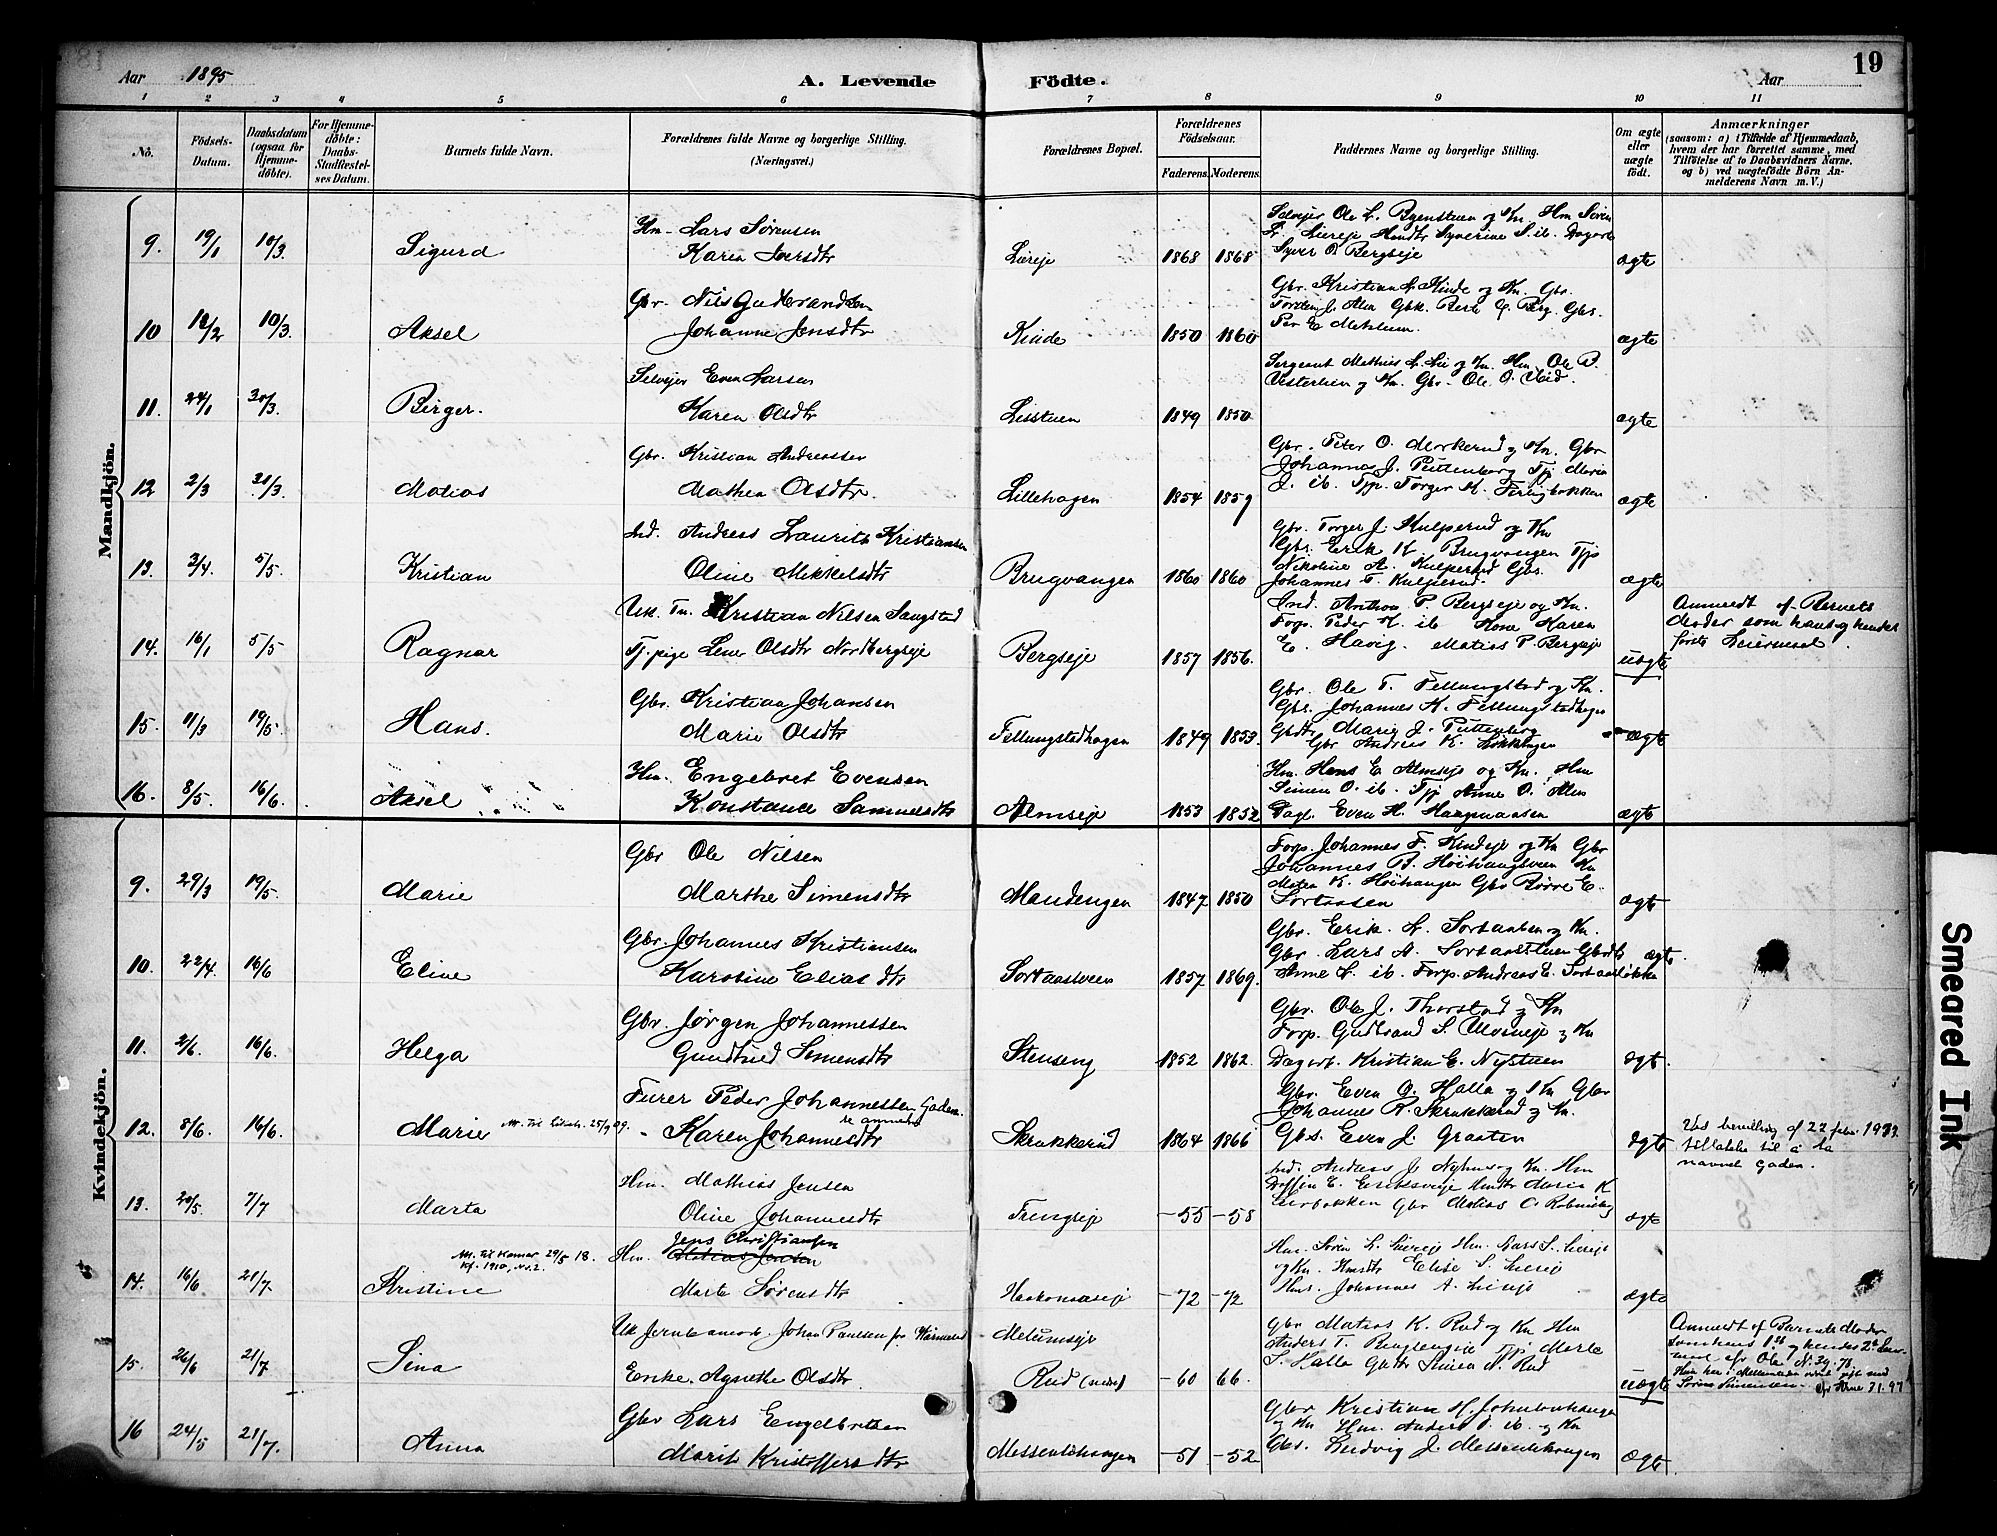 Aar 1895
A. Levende Födte.
Aar
19
1 2 3 4 5 6 7 8 9 10 11
No.
Födsels-
Datum.
Daabsdatum
(ogsaa for
Hjemme-
döbte).
For Hjemme-
döbte:
Daabs-
Stadfæstel-
ses Datum.
Barnets fulde Navn.
Forældrenes fulde Navne og borgerlige Stilling.
(Næringsvei.)
Forældrenes Bopæl.
Forældrenes
Födselsaar.
Faderens. Moderens.
Faddernes Navne og borgerlige Stilling.
Om ægte
eller
uægte
födt.
Anmærkninger
(saasom: a) i Tilfælde af Hjemmedaab,
hvem der har forrettet samme, med
Tilföielse af to Daabsvidners Navne.
og b) ved uægtefödte Börn An-
melderens Navn m. V.)
Mandkjön.
9. 19/1 10/3 Sigurd
Hm. Lars Sørensen
Karen Iversdtr
Liereje 1868 1868
Selvejer Ole L. Byenstuen og Kn. Hm Søren
L. Liereje Hmdtr Syverine S. ib. Dagarb
Syver O. Bergseje
ægte
10 12/2 10/3 Aksel
Gbr. Nils Gudbrandsen
Johanne Jensdtr
Kinde 1850 1860
Gbr. Kristian L. Kinde og Kn. Gbr.
Torsten J. Alm Gbk. Berte E. Berg. Gbs.
Per E Metlien.
ægte
11. 24/1 31/3. Birger.
Selvejer Even Larsen
Karen Olsdtr
Lisstuen 1849 1850
Sergeant Mathias L. Lie og Kn. Hm. Ole P.
Vesterlien og Kn. Gbr. Ole O.
ægte
12 2/3 31/3. Matias
Gbr. Kristian Andreassen
Mathea Olsdtr.
Lillehagen 1854 1859
Gbr. Peter O. Morkerud og Kn. Gbr
Johannes J. Puttenborg Tjp Maria
J. ib. Tjp. Torger K.
ægte
13. 3/4. 5/5. Kristian
Ind. Andreas Laurits Kristiansen
Oline Mikkelsdtr
Brugvangen 1860 1860
Gbr. Torger J. Kulperud og Kn
Gbs. Erik K. Brugvangen Tjp
Nikoline A. Kulperud Gbs.
Johannes T. Kulperud.
ægte
14. 16/1 5/5 Ragnar
Uk. Tn. Kristian Nilsen Sangstad
Tj.pige Lene Olsdtr Nordbergseje
Bergseje 1857 1856.
Ind. Anthon P. Bergseje og Kn.
Forp. Peder K. ib Kone Karen
E. Havig. Matias P. Bergseje
uægte
Anmeldt af Barnets
Moder som hans og hendes
første Leiermaal.
15. 11/3 19/5. Hans.
Gbr. Kristian Johansen
Marie Olsdtr
Fellungstadhagen 1849 1853.
Gbr. Ole T. Fellungstad og Kn.
Gbs. Johannes K. Fellungstadhagen
Gbdtr Marie J. Puttenborg
Gbr Andreas K. Løkkhagen
ægte
16. 8/5. 16/6. Aksel
Hm. Engebret Evensen
Konstanse Samuelsdtr
Almseje 1853 1852
Hm. Hans E. Almseje og Kn. Hm
Simen O. ib. Tjp Anne O. Alm
Dagl. Even H. Haagenaasen
ægte
Kvindekjön.
9. 29/3 19/5. Marie
Gbr Ole Nilsen
Marthe Simensdtr
Maudengen 1847 1850
Forp. Johannes F. Kindeje og Kn Gbr
Johannes B. Høihaugsveen Kn
Matea K. Høihaugen Gbr Børre E.
Sortaasen
ægte
10. 22/4. 16/6 Eline
Gbr. Johannes Kristiansen
Karoline Eliasdtr
Sortaasveen 1857 1869.
Gbr. Erik L. Sortaasen og Kn.
Gbr. Lars A. Sortaasstuen Gbrdtr
Anne L. ib. Forp. Andreas E. Sortaasløkka
ægte.
11. 2/6. 16/6. Helga
Gbr. Jørgen Johannessen
Gundhild Simensdtr
Stenseng 1852 1862.
Gbr. Ole J. Thorstad og Kn
Forp. Gudbrand S. Ulvineje og Kn
Dagarb. Kristian E. Nystuen
ægte.
12. 8/6. 16/6. Marie
25/9 09.
Furer Peder Johannessen Gaden.
Karen Johannesdtr
Skrukkerud 1864 1866
Gbr. Even O. Halla og Kn Gbr
Johannes R. Skrukkerud og Kn.
Gbs. Even J. Graaten
ægte
Ved bevilling af 22 febr. 1923.
tillatelse til å ta
navnet Gaden.
13. 20/5 7/7 Marta
Hm. Mathias Jensen
Oline Johannesdtr
Trengseje -55 -58
Ind. Andreas J. Nyhus og Kn. Hm
Doffin E. Eriksveseje Hmdtr Maria K
Lierbakken Gbr Matias O.
ægte
14. 16/6 21/7. Kristine
Att. til Hamar 29/5 18.
Kf. 1910, Nr. 2.
Jens Christiansen
Hm. Matias Jensen
Marte Sørensdtr
Haakonaseje -72 -72
Hm. Søren L. Liereje Hm. Lars S. Liereje
og Kn. Hmdtr Elise S. Liereje
Hms. Johannes A. Liereje
ægte
15. 26/6 21/7 Sina
Uk Jernbanearb. Johan Paulsen fra Värmeland
Enke. Agnethe Olsdtr.
Melumseje
Rud (nedre) -60 66.
Gbr Matias K. Rud og Kn Hm
Anders T. Tjp Marte
S. Halla Gbdtr Sinea N. Rud
uægte
Anmeldt af Barnets Moder
som hans 1ste og hendes 2det Leier-
maal
16 24/5 21/7. Anna
Gbr Lars Engelbretsen
Marit Kristoffersdtr
Messenlihaugen -51 -52
Gbr Kristian H.
og Kn Hm. Anders P. ib. og Kn
Gbs. Ludvig J. Messenlihaugen
ægte.
Smeared Ink